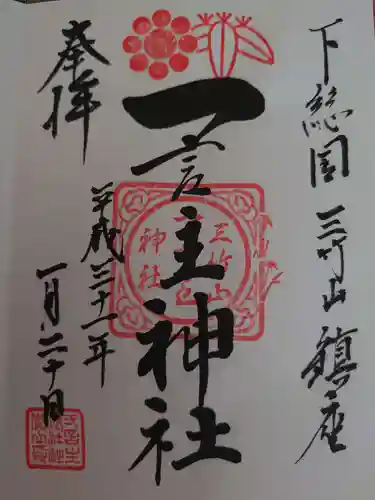 下総国三竹山鎮座
一言主神社
三竹山
神社
奉拝
平成三十一年
一月二十日